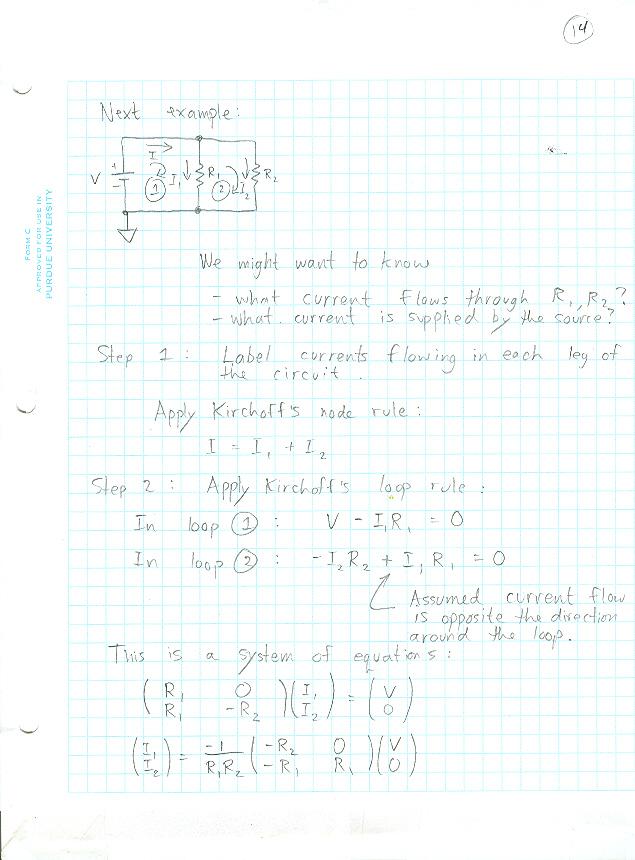 14
Next example:
V + - I 1 I₁ R₁ 2 I₂ R₂
FORM C
APPROVED FOR USE IN
PURDUE UNIVERSITY
We might want to know
- what current flows through R₁, R₂?
- what current is supplied by the source?
Step 1: Label currents flowing in each leg of
the circuit.
Apply Kirchoff's node rule:
I = I₁ + I₂
Step 2: Apply Kirchoff's loop rule:
In loop 1: V - I₁R₁ = 0
In loop 2: -I₂R₂ + I₁R₁ = 0
Assumed current flow
is opposite the direction
around the loop.
This is a system of equations:
(R₁ 0) (I₁) = (V)
(R₁ -R₂) (I₂) (0)
(I₁) = -1 (-R₂ 0) (V)
(I₂) R₁R₂ (-R₁ R₁) (0)